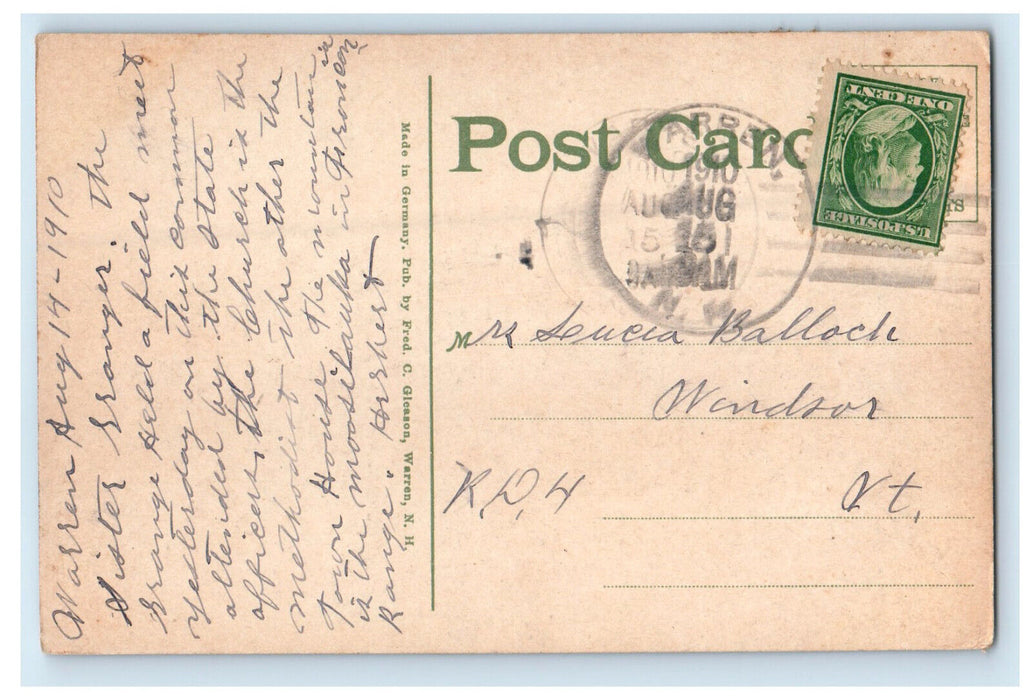 Warren Aug 14-1910
Sister Granger. the
Grange Held a field meet
yesterday on this common
attended by the State
officers, the Church is the
methodist the other the
Town House The mountain in
is the moosilauka in Franconia
Range.
Made in Germany. Pub. by Fred. C. Gleason, Warren, N. H.
Post Card
WARREN
1910
AUG
15
AM
N.H.
ONE CENT
U.S. POSTAGE
Mrs Lucia Balloch
Windsor
R.D. 4 Vt.